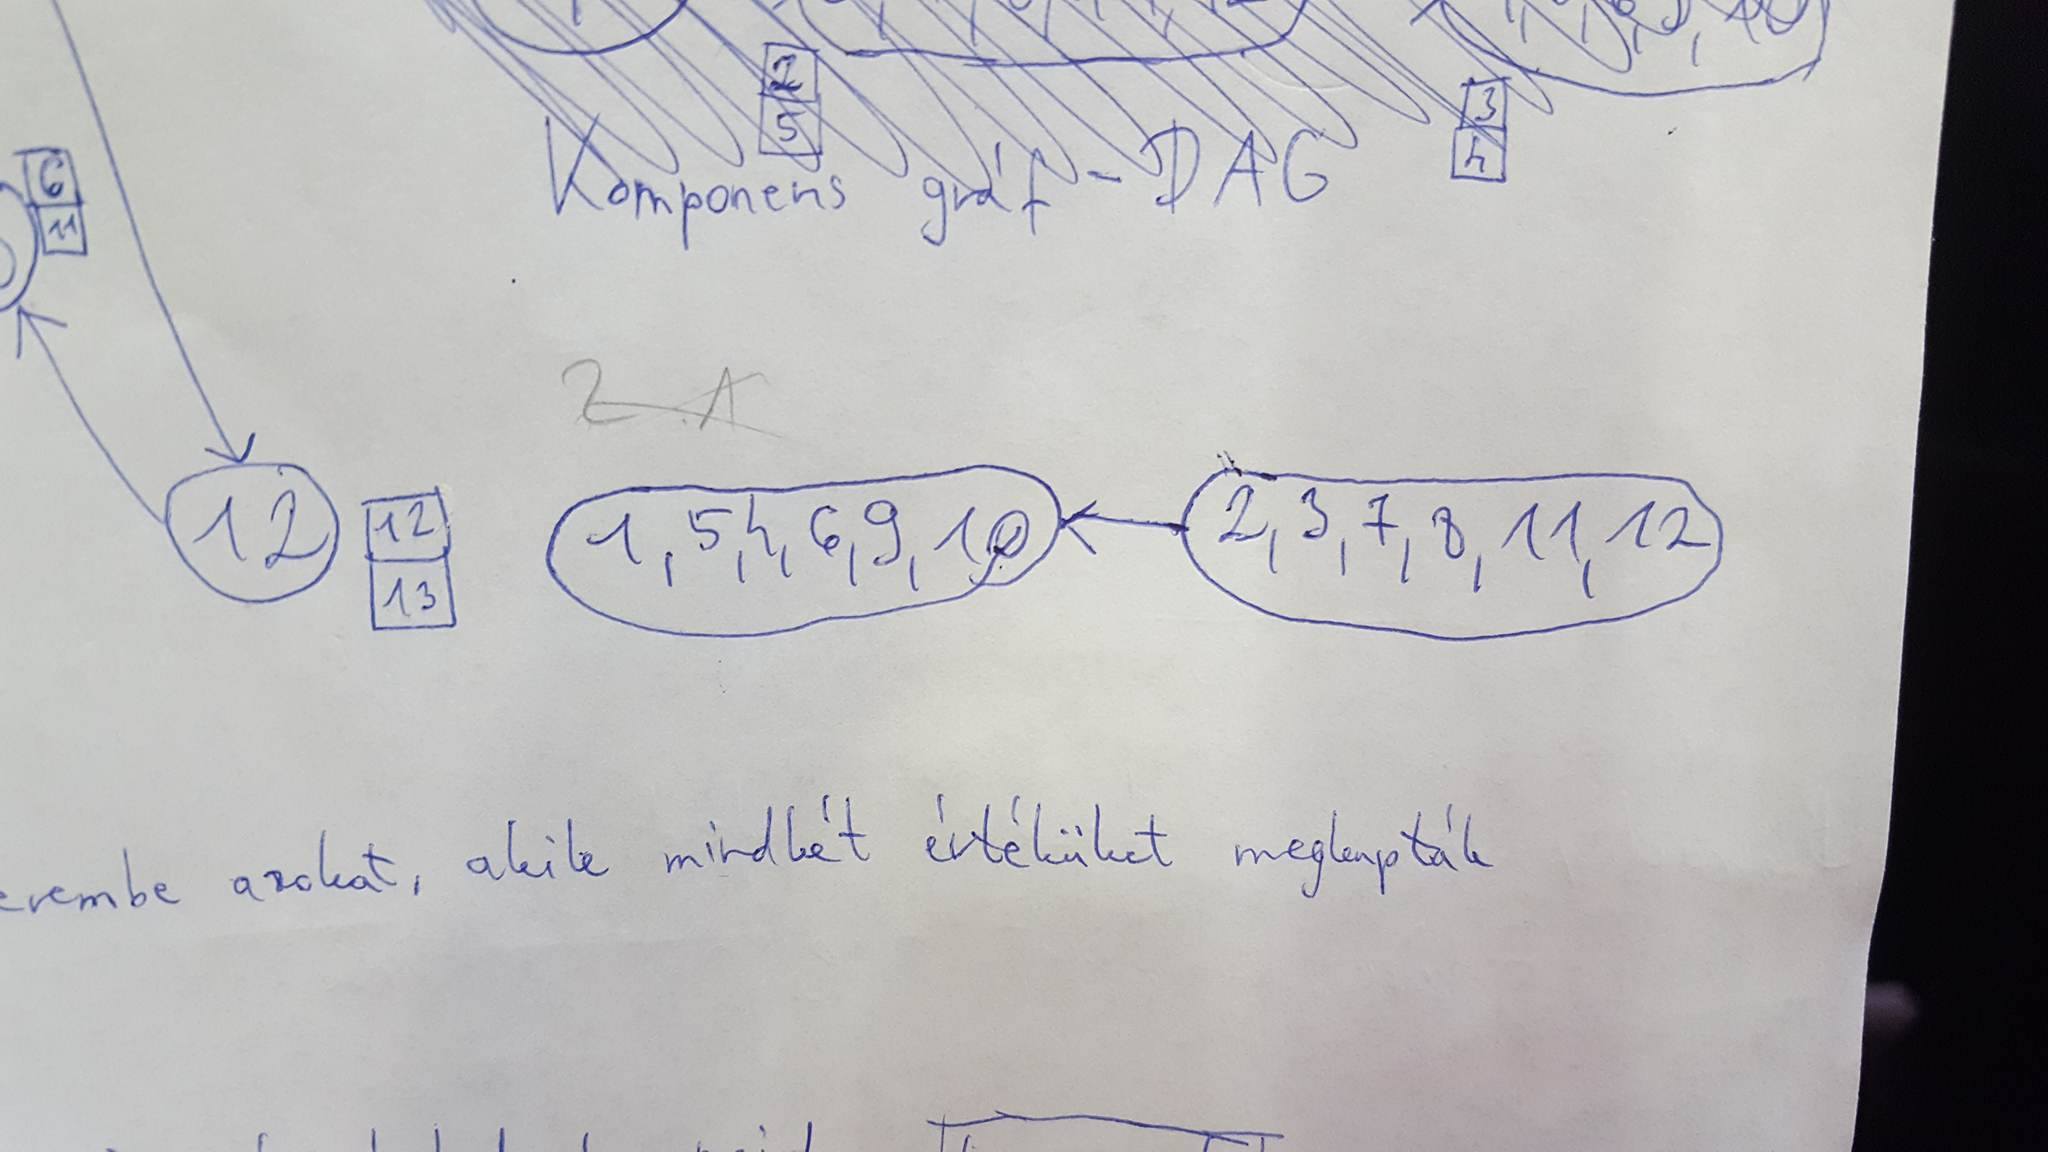 2
5
3
4
Komponens gráf - DAG
6
11
12
12
13
1, 5, 4, 6, 9, 10
2, 3, 7, 8, 11, 12
erembe azokat, akik mindkét értéküket megkapták